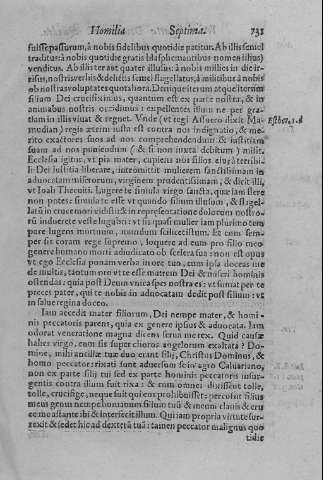 Homilia Septima. 731
fuisse passurum, à nobis fidelibus quotidie patitur. Ab illis semel
traditur: à nobis quotidie gratis blasphemantibus nomen illius)
venditus. Ab illis ter aut quater illusus: à nobis millies in die ir-
risus, nostris verbis & delictis semel flagellatus, à militibus à nobis
ob nostras voluptates quot hora. Denique iterum atque iterum
filium Dei crucifiximus, quantum est ex parte nostra, & in
animabus nostris occidimus: expellentes illum ne per gra-
tiam in illis viuat & regnet. Vnde (vt regi Assuero dixit Ma- Esther.
mudian) regis æterni iusta est contra nos indignatio, & me-
rito exactores suos ad nos comprehendendum & iustitiam
suam ad nos puniendum ( & si non iuxta debitum ) misit.
Ecclesia igitur, vt pia mater, cupiens nos filios eius à terribi-
li Dei iustitia liberare, intromittit mulierem sanctissimam in
aduocatam miserorum, virginem prudentissimam, & dicit illi,
vt Ioab Thecuiti. Lugere te simula virgo sancta, quæ iam flere
non potes: simulate esse vt quando filium illusum, & flagel-
latũ in cruce mori vidisti: & in representatione dolorum nostro-
rũ induere veste lugubri: vt sis quasi mulier iam plurimo tem-
pore lugens mortuum, mundum scilicet istum. Et cum sem-
per sis coram rege supremo, loquere ad eum pro filio meo
genere humano morti adiudicato ob scelera sua: non est opus
vt ego Ecclesia ponam verba in ore tuo, cum ipsa doceas me
de multis, tantum oro vt te esse matrem Dei & miseri hominis
ostendas: quia post Deum vnica spes nostra es: vt sumat per te
preces pater, qui te nobis in aduocatam dedit post filium: vt
in salue regina doceo.
Iam accedit mater filiorum, Dei nempe mater, & homi-
nis peccatoris parens, quia ex genere ipsius & aduocata. Iam
odorat veneratione magna dicens serua me rex. Quid causæ
habes virgo, cum sis super choros angelorum exaltata? Do-
mine, mihi ancillæ tuæ duo erant filij, Christus Dominus, &
homo peccator: rixati sunt aduersum se in agro Caluariano,
non ex parte filij tui sed ex parte hominis peccatoris insur-
gentis contra illum fuit rixa: & cum omnes dixissent tolle,
tolle, crucifige, neque fuit qui eos prohibuisset: percussit filius
meus genu nempe humanus filium tuũ & meum clauis & cru
ce me astante ibi & interfecit illum. Qui iam propria virtute sur-
rexit & sedet hic ad dexterã tuã: tamen peccator malignus quo
tidie